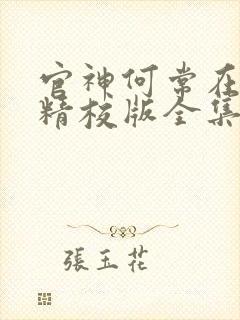 官神何常在
精校版全集
張玉花